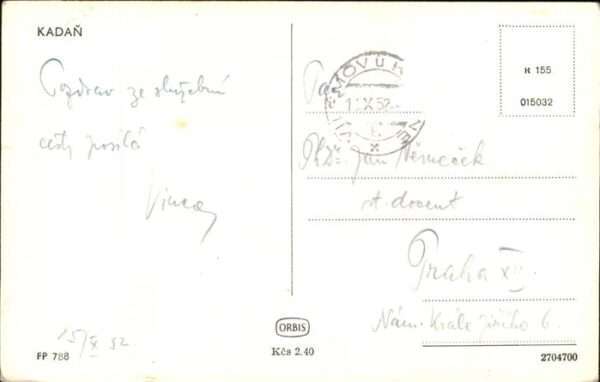 KADAŇ
Pozdrav ze služební
cesty posílá
15/X 52
FP 788
ORBIS
Kčs 2.40
H 155
015032
Pan
Jan Němeček
st. docent
Praha XII.
Nám. Krále Jiřího 6.
2704700